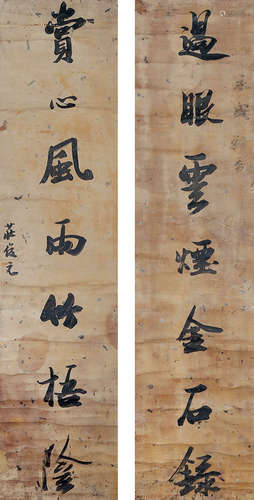 過眼雲煙金石錄
賞心風雨竹梧陰
莊俊元